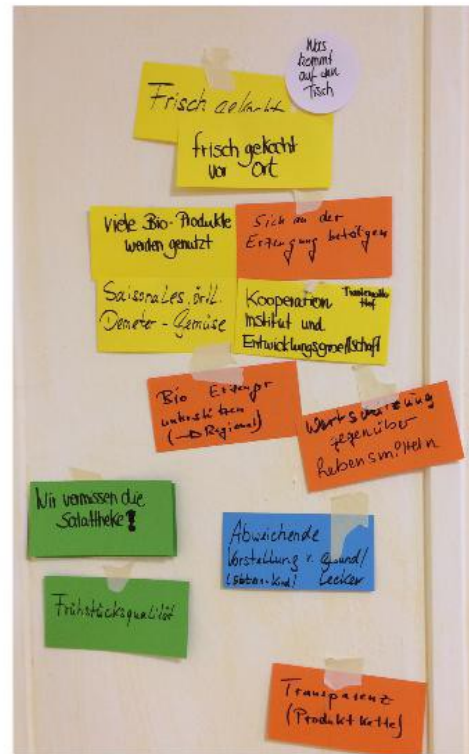 Was
kommt
auf den
Tisch
Frisch gekocht
frisch gekocht
vor Ort
Viele Bio-Produkte
werden genutzt
Sich an der
Erzeugung betätigen
Saisonales, örtl.
Demeter-Gemüse
Kooperation
Institut und
Entwicklungsgesellschaft
Hof
Bio Erzeuger
unterstützen
(→ Regional)
Wertschätzung
gegenüber
Lebensmitteln
Wir vermissen die
Salattheke!
Abweichende
Vorstellung v. gesund/
Lecker
Frühstücksqualität
Transparenz
(Produktkette)